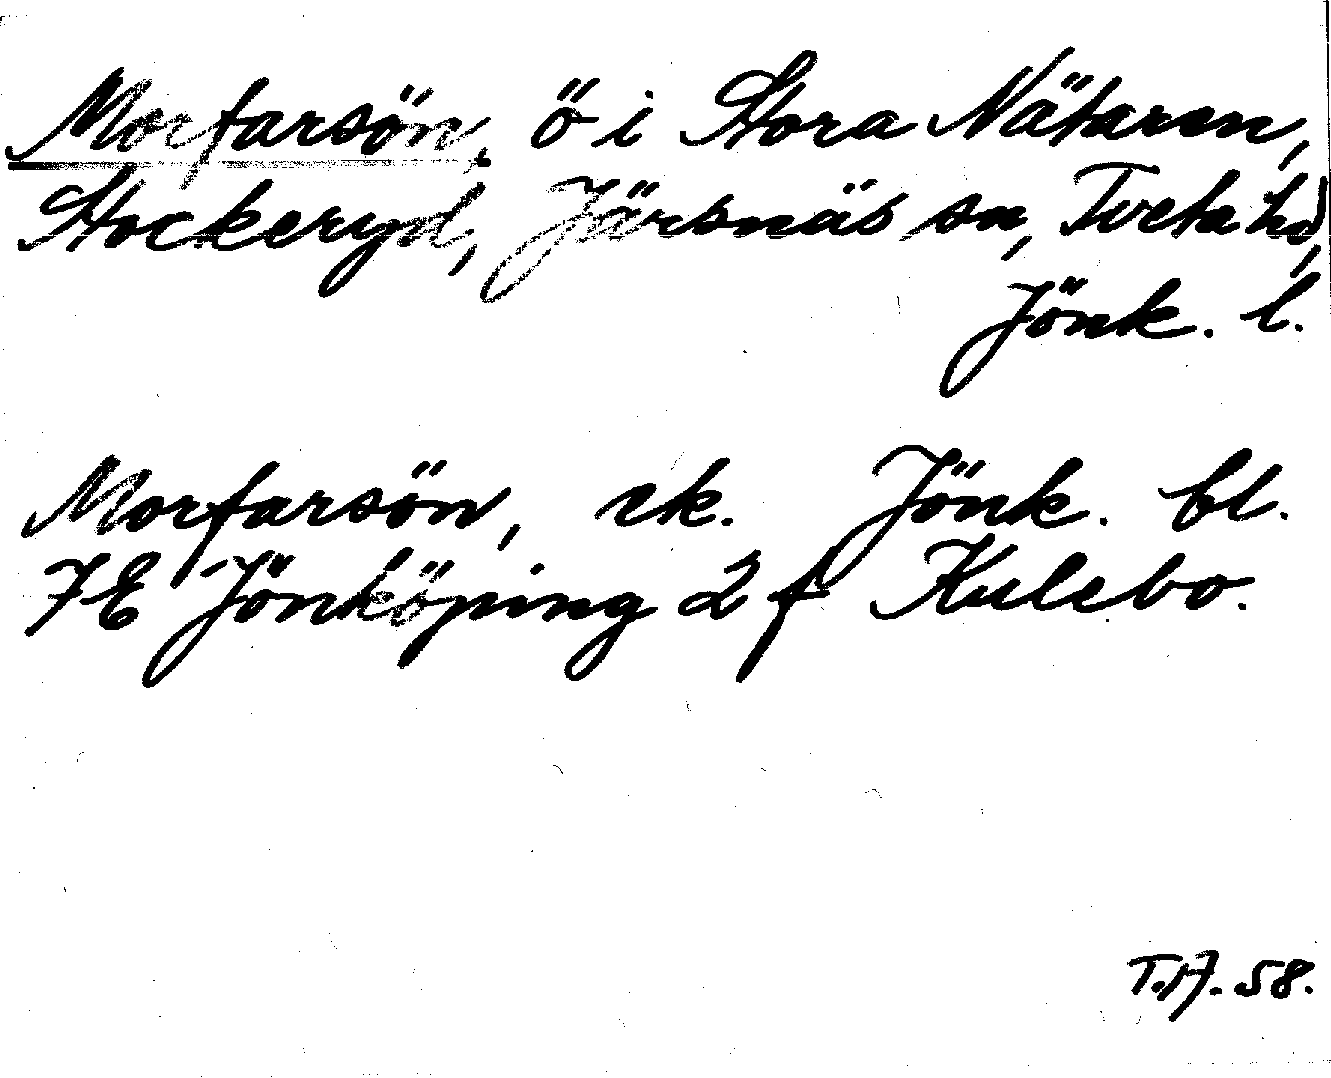 Morfarsön, ö i Stora Nätaren,
Stockeryd, Järsnäs sn, Tveta hd,
Jönk. l.
Morfarsön, ek. Jönk. bl.
7E Jönköping 2f Kulebo.
T.A. 58.